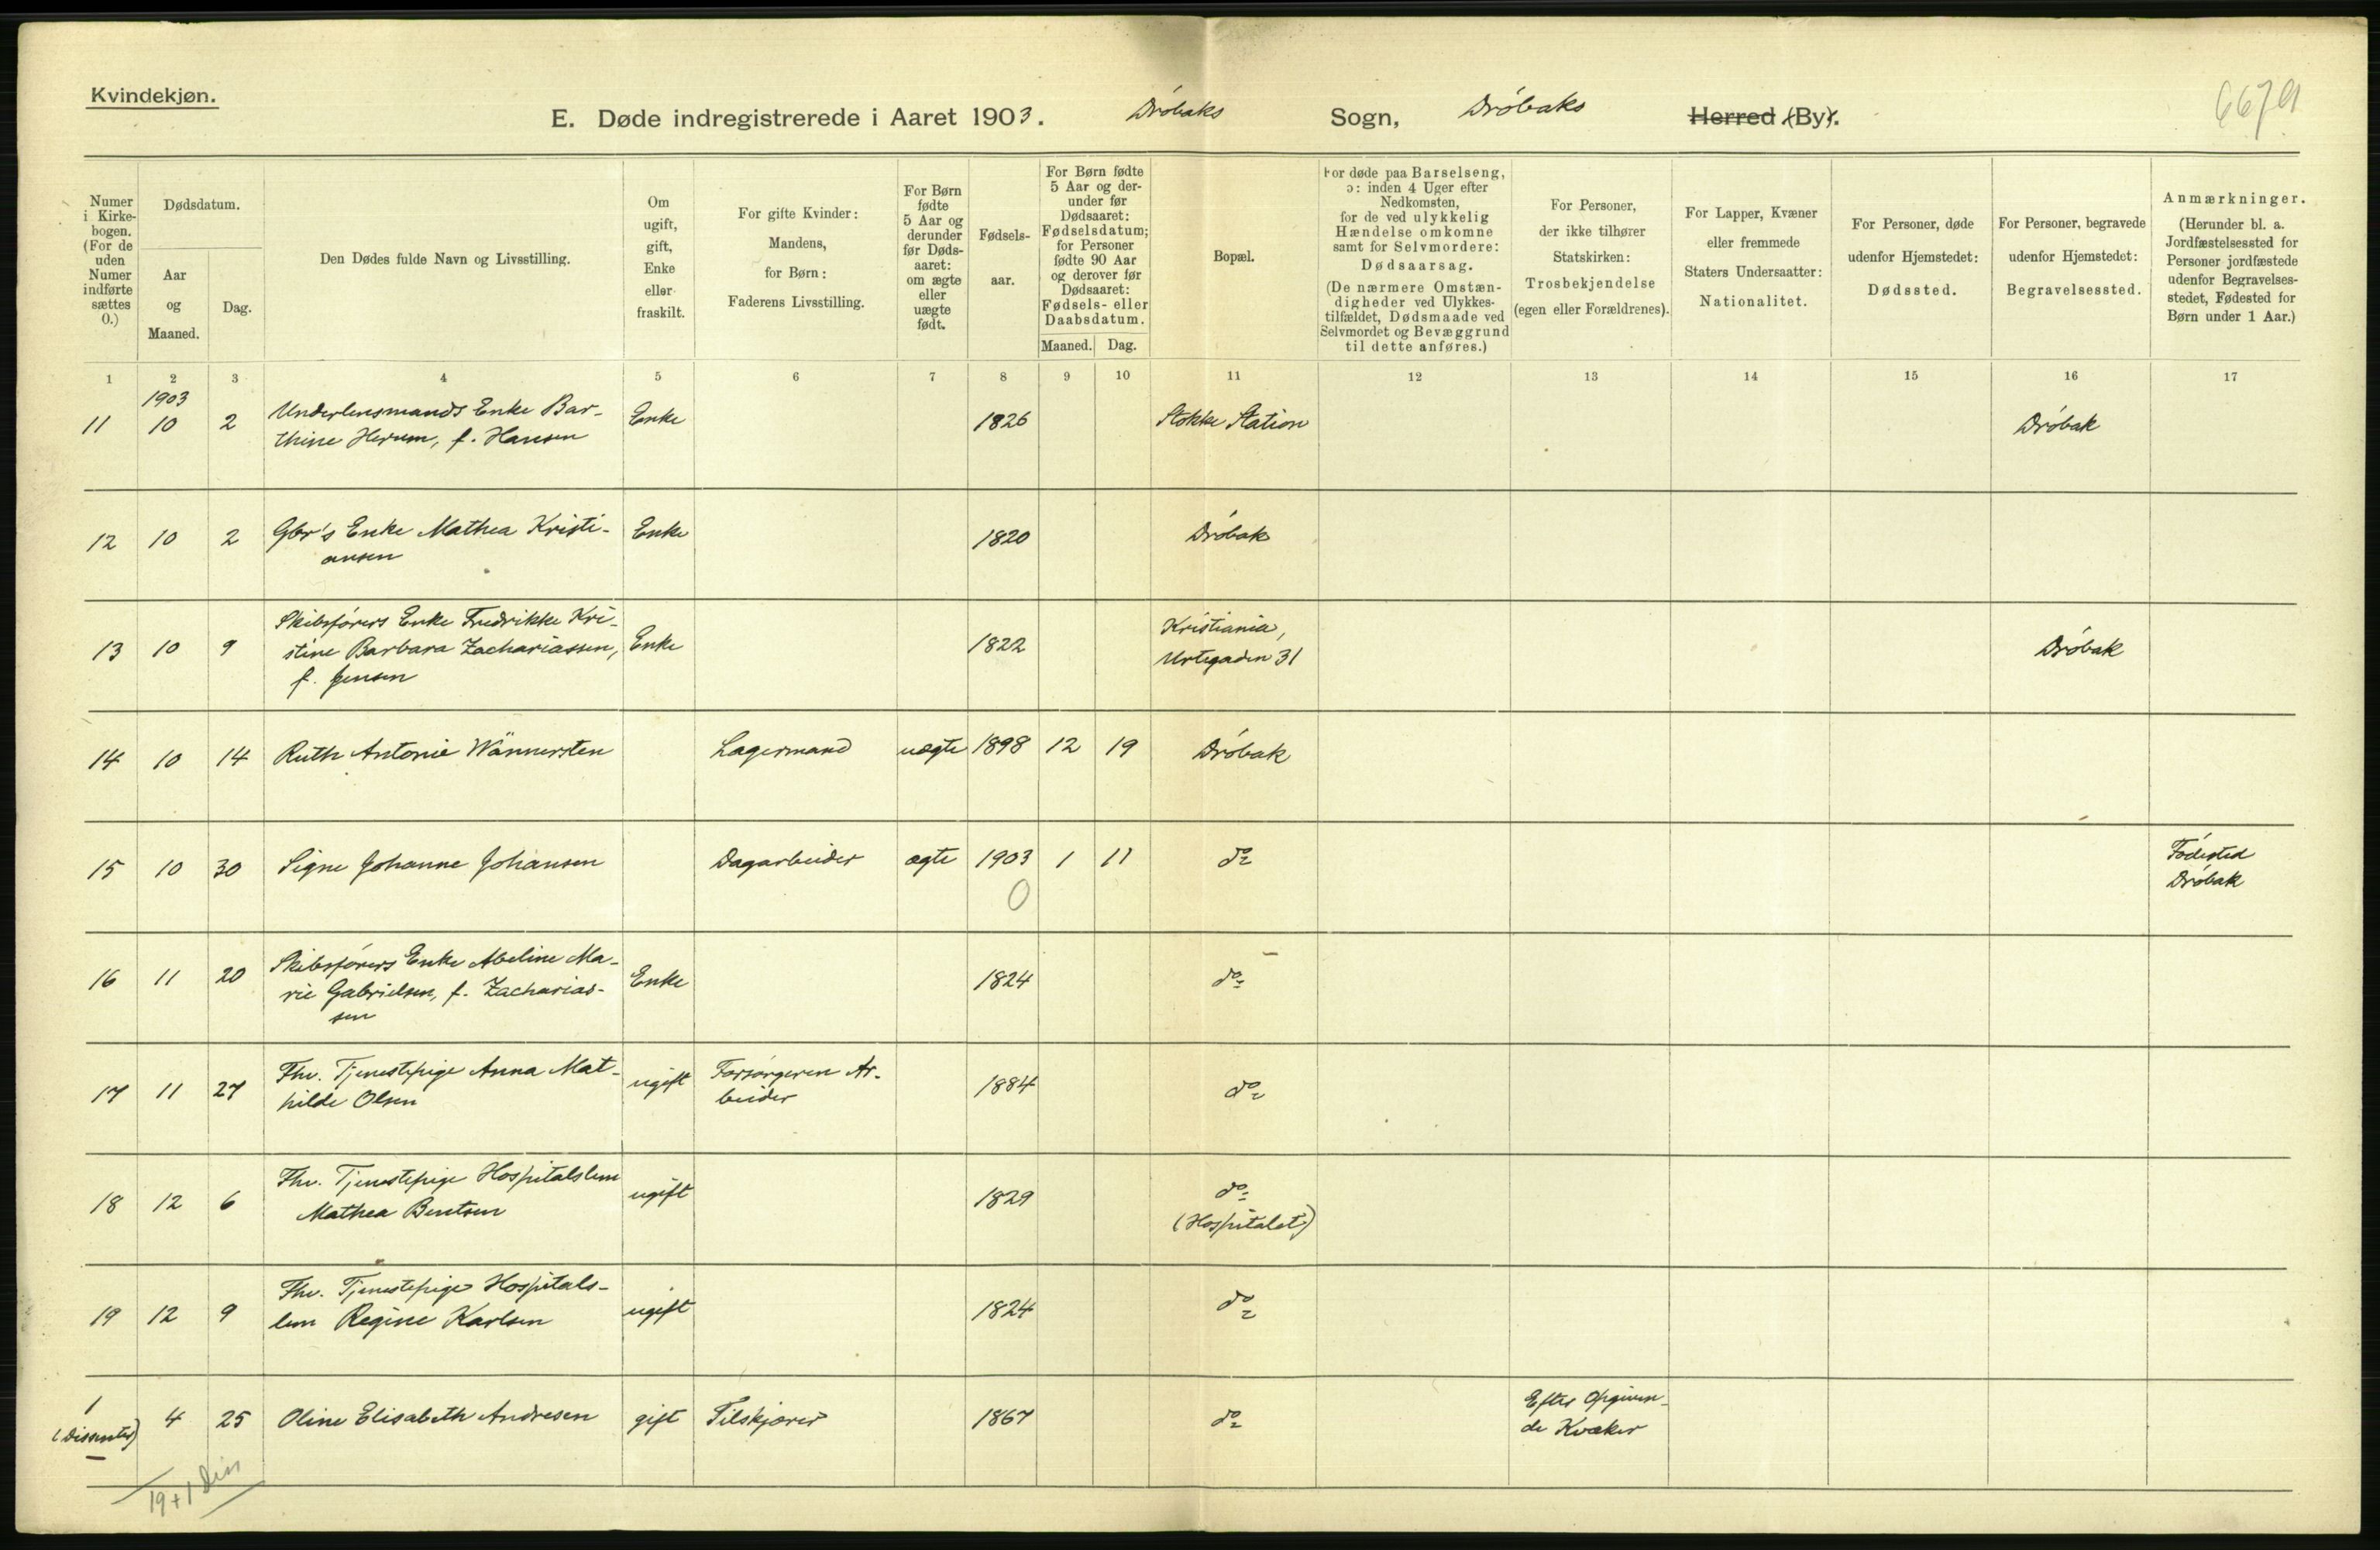 Kvindekjøn.
E. Døde indregistrerede i Aaret 1903. Drøbaks Sogn, Drøbaks Herred (By).
Numer i Kirkebogen. (For de uden Numer indførte sættes 0.)
Dødsdatum.
Aar og Maaned.
Dag.
Den Dødes fulde Navn og Livsstilling.
Om ugift, gift, Enke eller fraskilt.
For gifte Kvinder: Mandens, for Børn: Faderens Livsstilling.
For Børn fødte 5 Aar og derunder før Dødsaaret: om ægte eller uægte født.
Fødselsaar.
For Børn fødte 5 Aar og derunder før Dødsaaret: Fødselsdatum; for Personer fødte 90 Aar og derover før Dødsaaret: Fødsels- eller Daabsdatum.
Maaned. Dag.
Bopæl.
For døde paa Barselseng, ɔ: inden 4 Uger efter Nedkomsten, for de ved ulykkelig Hændelse omkomne samt for Selvmordere: Dødsaarsag. (De nærmere Omstændigheder ved Ulykkestilfældet, Dødsmaade ved Selvmordet og Bevæggrund til dette anføres.)
For Personer, der ikke tilhører Statskirken: Trosbekjendelse (egen eller Forældrenes).
For Lapper, Kvæner eller fremmede Staters Undersaatter: Nationalitet.
For Personer, døde udenfor Hjemstedet: Dødssted.
For Personer, begravede udenfor Hjemstedet: Begravelsessted.
Anmærkninger. (Herunder bl. a. Jordfæstelsessted for Personer jordfæstede udenfor Begravelsesstedet, Fødested for Børn under 1 Aar.)
1 2 3 4 5 6 7 8 9 10 11 12 13 14 15 16 17
1903
11 10 2 Underlensmands Enke Barthine Herum, f. Hansen Enke 1826 Stokke Station Drøbak
12 10 2 Gbr's Enke Mathea Kristiansen Enke 1820 Drøbak
13 10 9 Skibsførers Enke Fredrikke Kristine Barbara Zachariassen, f. Jensen Enke 1822 Kristiania, Urtegaden 31 Drøbak
14 10 14 Ruth Antonie Wännersten Lagermand uægte 1898 12 19 Drøbak
15 10 30 Signe Johanne Johansen Dagarbeider ægte 1903 1 11 do Fødested Drøbak
0
16 11 20 Skibsførers Enke Abeline Marie Gabrielsen, f. Zachariassen Enke 1824 do
17 11 27 Fhv. Tjenestepige Anna Mathilde Olsen ugift Forsørgeren Arbeider 1884 do
18 12 6 Fhv. Tjenestepige Hospitalslem Mathea Bentsen ugift 1829 do (Hospitalet)
19 12 9 Fhv. Tjenestepige Hospitalslem Regine Karlsen ugift 1824 do
1 (Dissenter) 4 25 Oline Elisabeth Andresen gift Tilskjærer 1867 do Efter Opgivende Kvæker
19+1 Diss